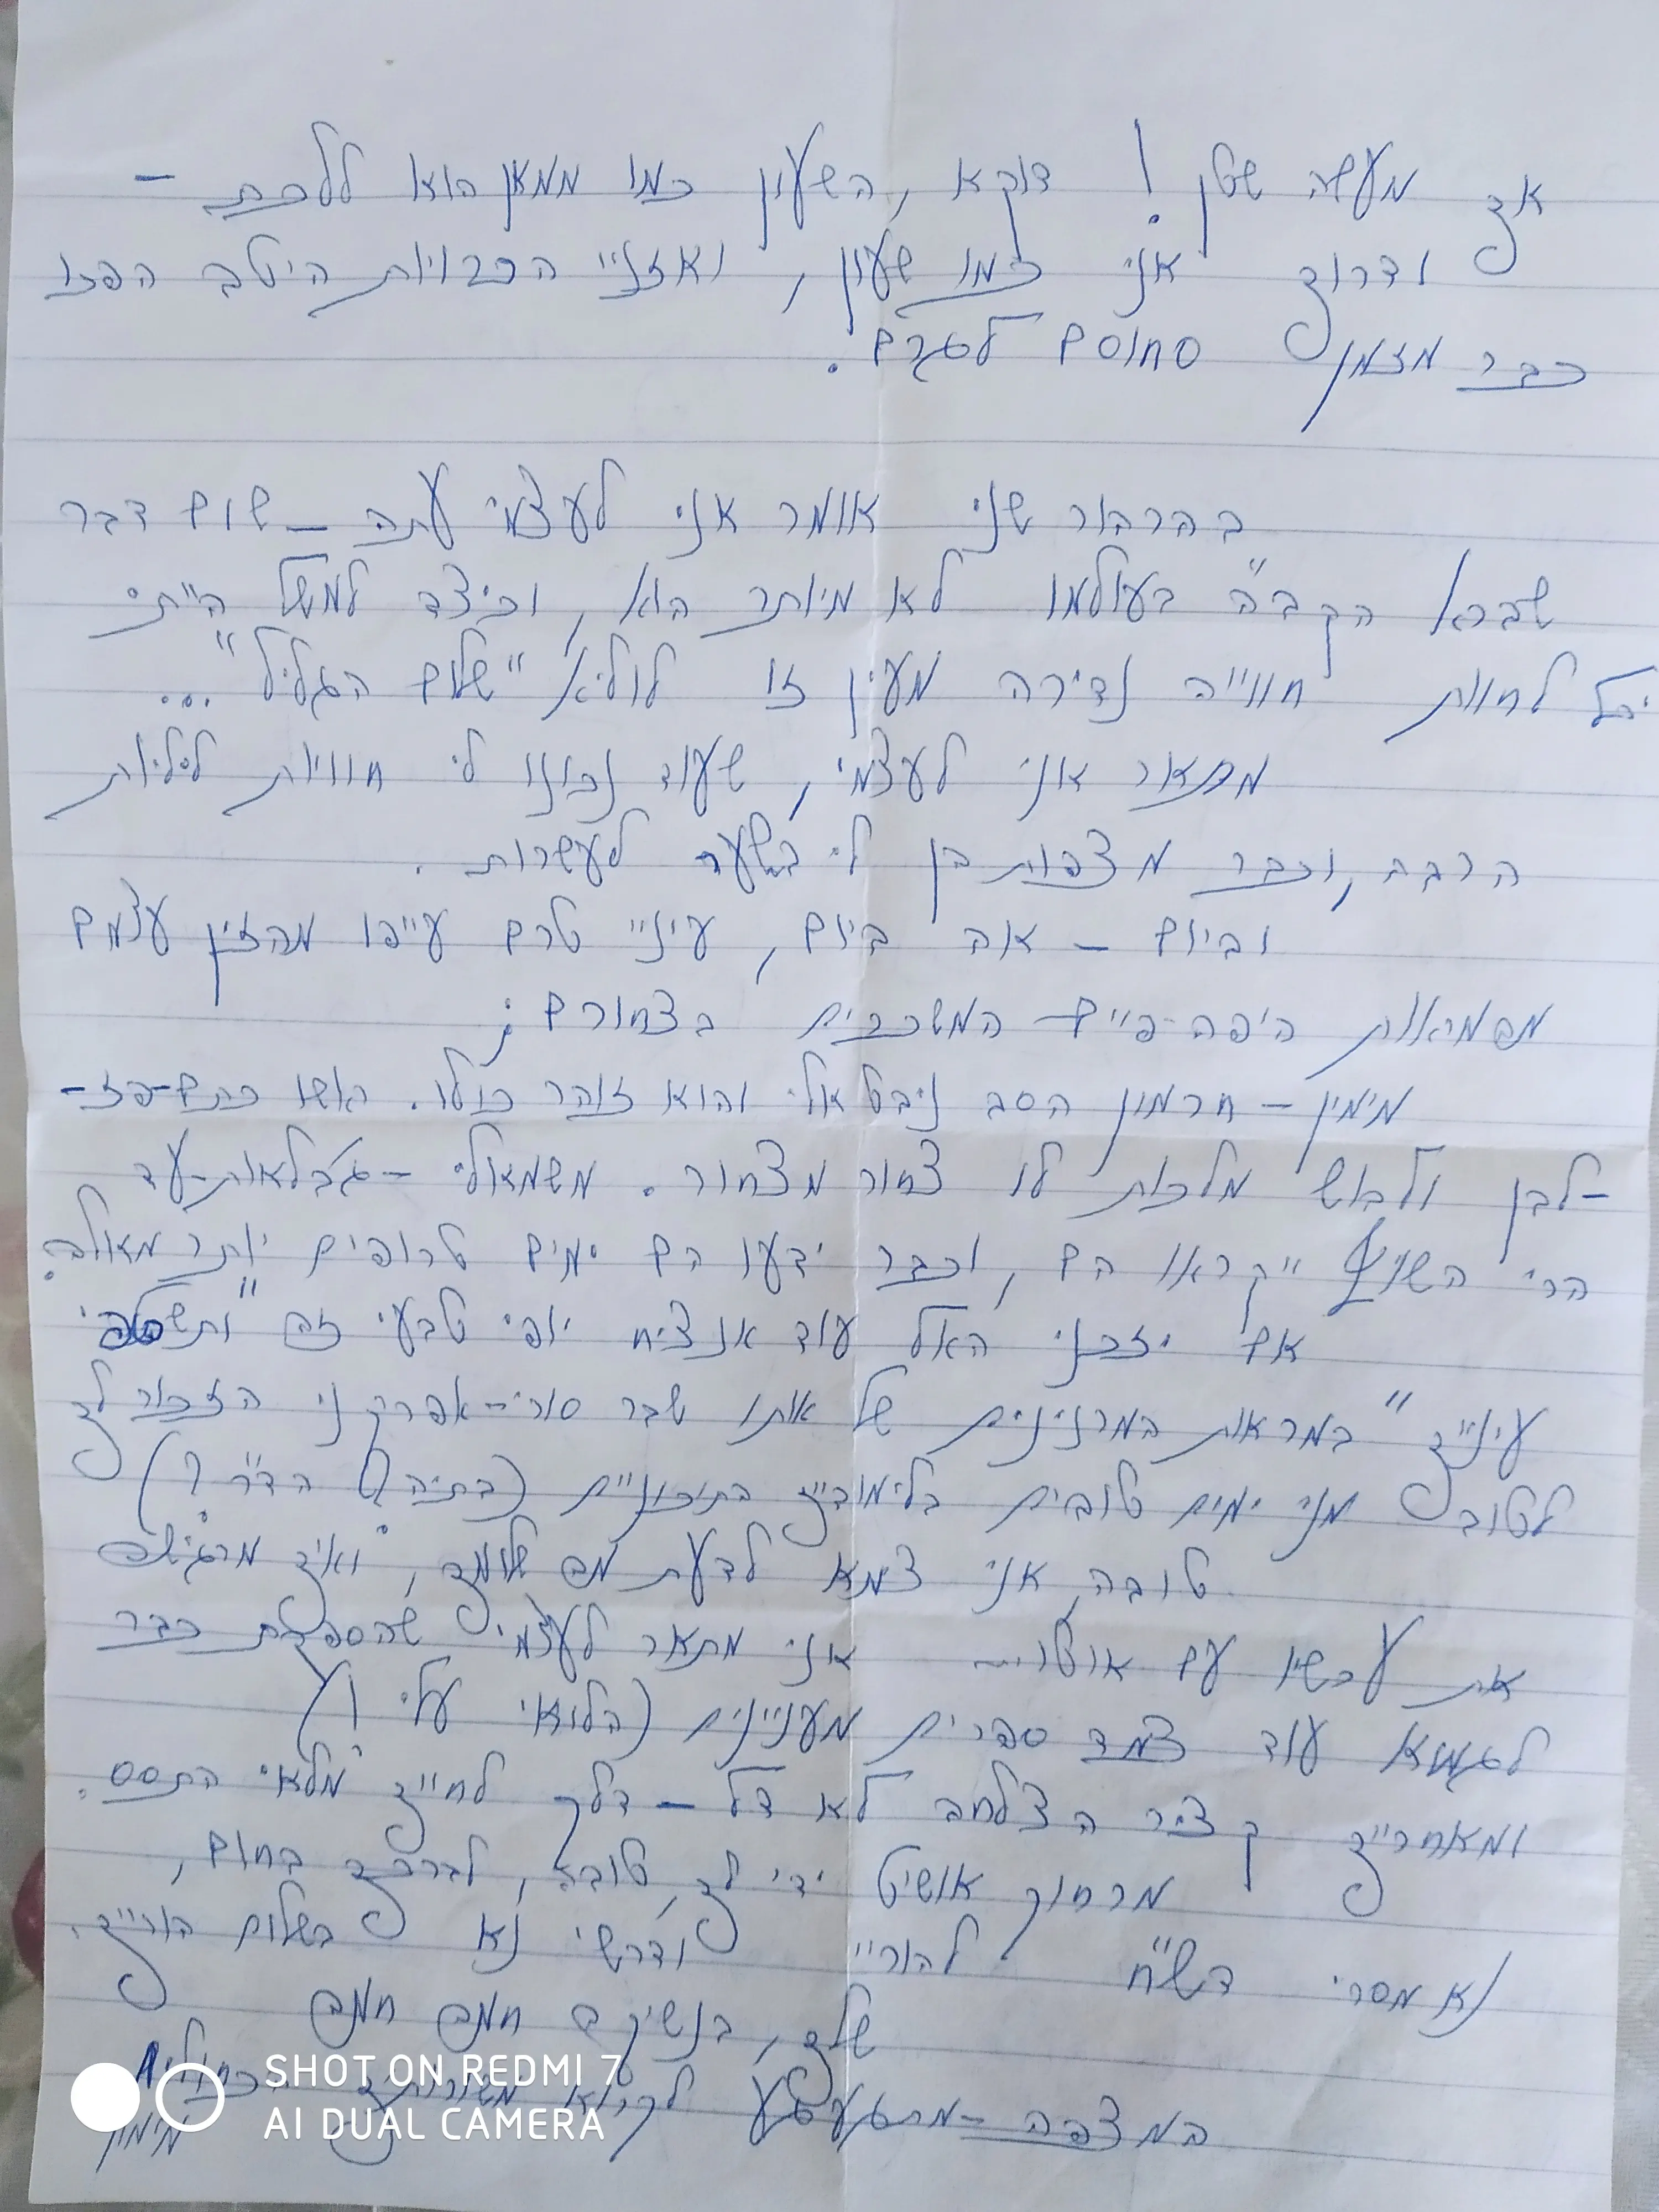 אך מעשה שטן! דוקא, השעון כמו ממאן הוא ללכת -
ודרוך אני כמו שעון, ואזניי הכרויות היטב הפכו
כבר מזמן סחוסם לגרם.
בהרהור שני אומר אני לעצמי עתה - שום דבר
שברא הקב"ה בעולמו לא מיותר הוא, וכיצד למשל הייתי
יכל לחוות חווייה נדירה מעין זו לולא "שלום הגליל"...
מתאר אני לעצמי, שעוד נכונו לי חוויות ליליות
הרבה, וכבר מצפות הן לי בשער לעשרות.
וביום - אה ביום, עיניי טרם עייפו מהזין עצמם
מהמראות היפה-פיים המשכרים בצחורם;
מימין - חרמון הסב ניבט אלי והוא זוהר כולו. ראשו כתם-פז-
-לבן ולבוש מלכות לו צחור מצחור. משמאלי - ג'בלאות-עד
הרי השוף ייקראו הם, וכבר ידעו הם ימים טרופים יותר מאלה.
אם יזכני האל עוד אנציח יופי טבעי זה "ותשטופי
עינייך" במראות המרנינים של אותו שבר סורי-אפריקני הזכור לך
לטוב מני ימים טובים בלימודייך התיכוניים (בתיה הד"ר?)
טובה, אני צמא לדעת מה שלומך, ואיך מרגישה
את עכשיו עם אוטו... אני מתאר לעצמי שהספקת כבר
לגמא עוד צמד ספרים מעניינים (הלואי עלי!)
ומאחרייך קציר הצלחה לא דל - דלק לחייך מלאי התסס.
מרחוק אושיט ידי לך, טובה, לברכך בחום,
נא מסרי דש"ח להוריי ודרשי נא בשלום הורייך.
שלך, בנשיקה חמה חמה
המצפה - מתגעגע לקרוא משורותיך הכחולות
מימון
SHOT ON REDMI 7
AI DUAL CAMERA